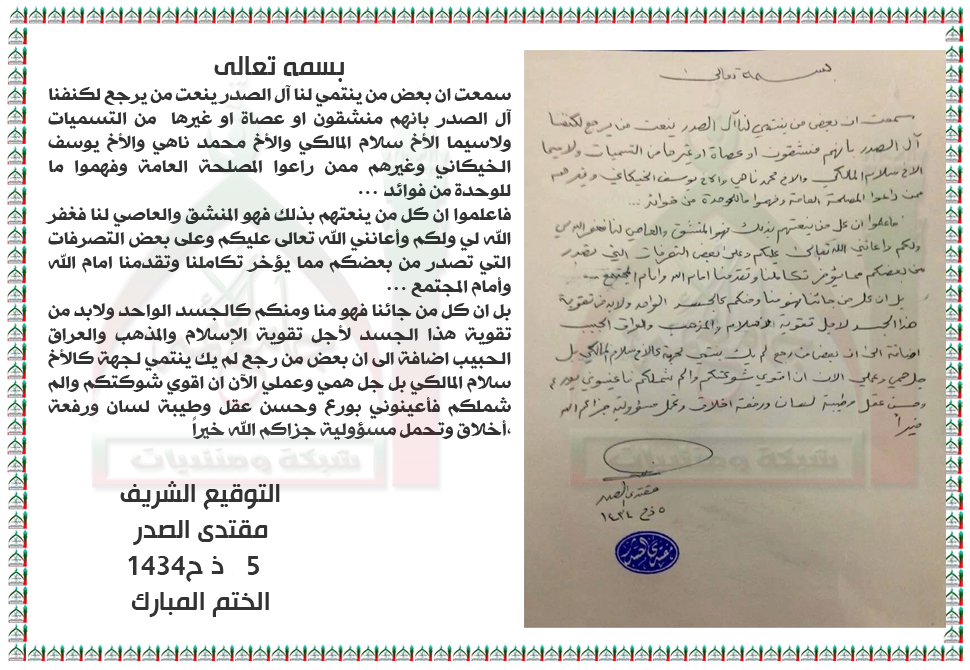 بسمه تعالى
سمعت ان بعض من ينتمي لنا آل الصدر ينعت من يرجع لكنفنا
آل الصدر بانهم منشقون او عصاة او غيرها من التسميات
ولاسيما الأخ سلام المالكي والأخ محمد ناهي والأخ يوسف
الخيكاني وغيرهم ممن راعوا المصلحة العامة وفهموا ما
للوحدة من فوائد ...
فاعلموا ان كل من ينعتهم بذلك فهو المنشق والعاصي لنا فغفر
الله لي ولكم وأعانني الله تعالى عليكم وعلى بعض التصرفات
التي تصدر من بعضكم مما يؤخر تكاملنا وتقدمنا امام الله
وأمام المجتمع ...
بل ان كل من جائنا فهو منا ومنكم كالجسد الواحد ولابد من
تقوية هذا الجسد لأجل تقوية الإسلام والمذهب والعراق
الحبيب اضافة الى ان بعض من رجع لم يك ينتمي لجهة كالأخ
سلام المالكي بل جل همي وعملي الآن ان اقوي شوكتكم والم
شملكم فأعينوني بورع وحسن عقل وطيبة لسان ورفعة
أخلاق وتحمل مسؤولية جزاكم الله خيراً،
التوقيع الشريف
مقتدى الصدر
5 ذ ح1434
الختم المبارك
بسمه تعالى
سمعت ان بعض من ينتمي لنا آل الصدر ينعت من يرجع لكنفنا
آل الصدر بانهم منشقون او عصاة او غيرها من التسميات ولاسيما
الاخ سلام المالكي والاخ محمد ناهي والاخ يوسف الخيكاني وغيرهم
ممن راعوا المصلحة العامة وفهموا ما للوحدة من فوائد ...
فاعلموا ان كل من ينعتهم بذلك فهو المنشق والعاصي لنا فغفر الله لي
ولكم واعانني الله تعالى عليكم وعلى بعض التصرفات التي تصدر
من بعضكم مما يؤخر تكاملنا وتقدمنا امام الله وامام المجتمع ...
بل ان كل من جائنا فهو منا ومنكم كالجسد الواحد ولابد من تقوية
هذا الجسد لاجل تقوية الاسلام والمذهب والعراق الحبيب
اضافة الى ان بعض من رجع لم يك ينتمي لجهة كالاخ سلام المالكي بل
جل همي وعملي الان ان اقوي شوكتكم والم شملكم فاعينوني بورع
وحسن عقل وطيبة لسان ورفعة اخلاق وتحمل مسؤولية جزاكم الله
خيراً
مقتدى الصدر
٥ ذ ح ١٤٣٤
مقتدى الصدر
شبكة ومنتديات
شبكة ومنتديات